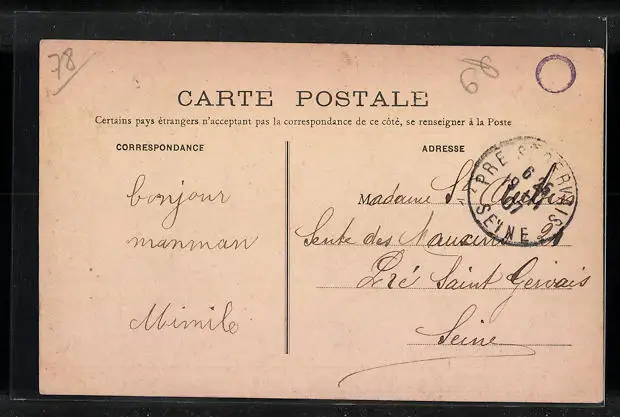 78
68
CARTE POSTALE
Certains pays étrangers n'acceptant pas la correspondance de ce côté, se renseigner à la Poste
CORRESPONDANCE
ADRESSE
bonjour
manman
Mimile
Madame St
Sente des
Pré Saint Gervais
Seine
PRE ST GERVAIS
SEINE